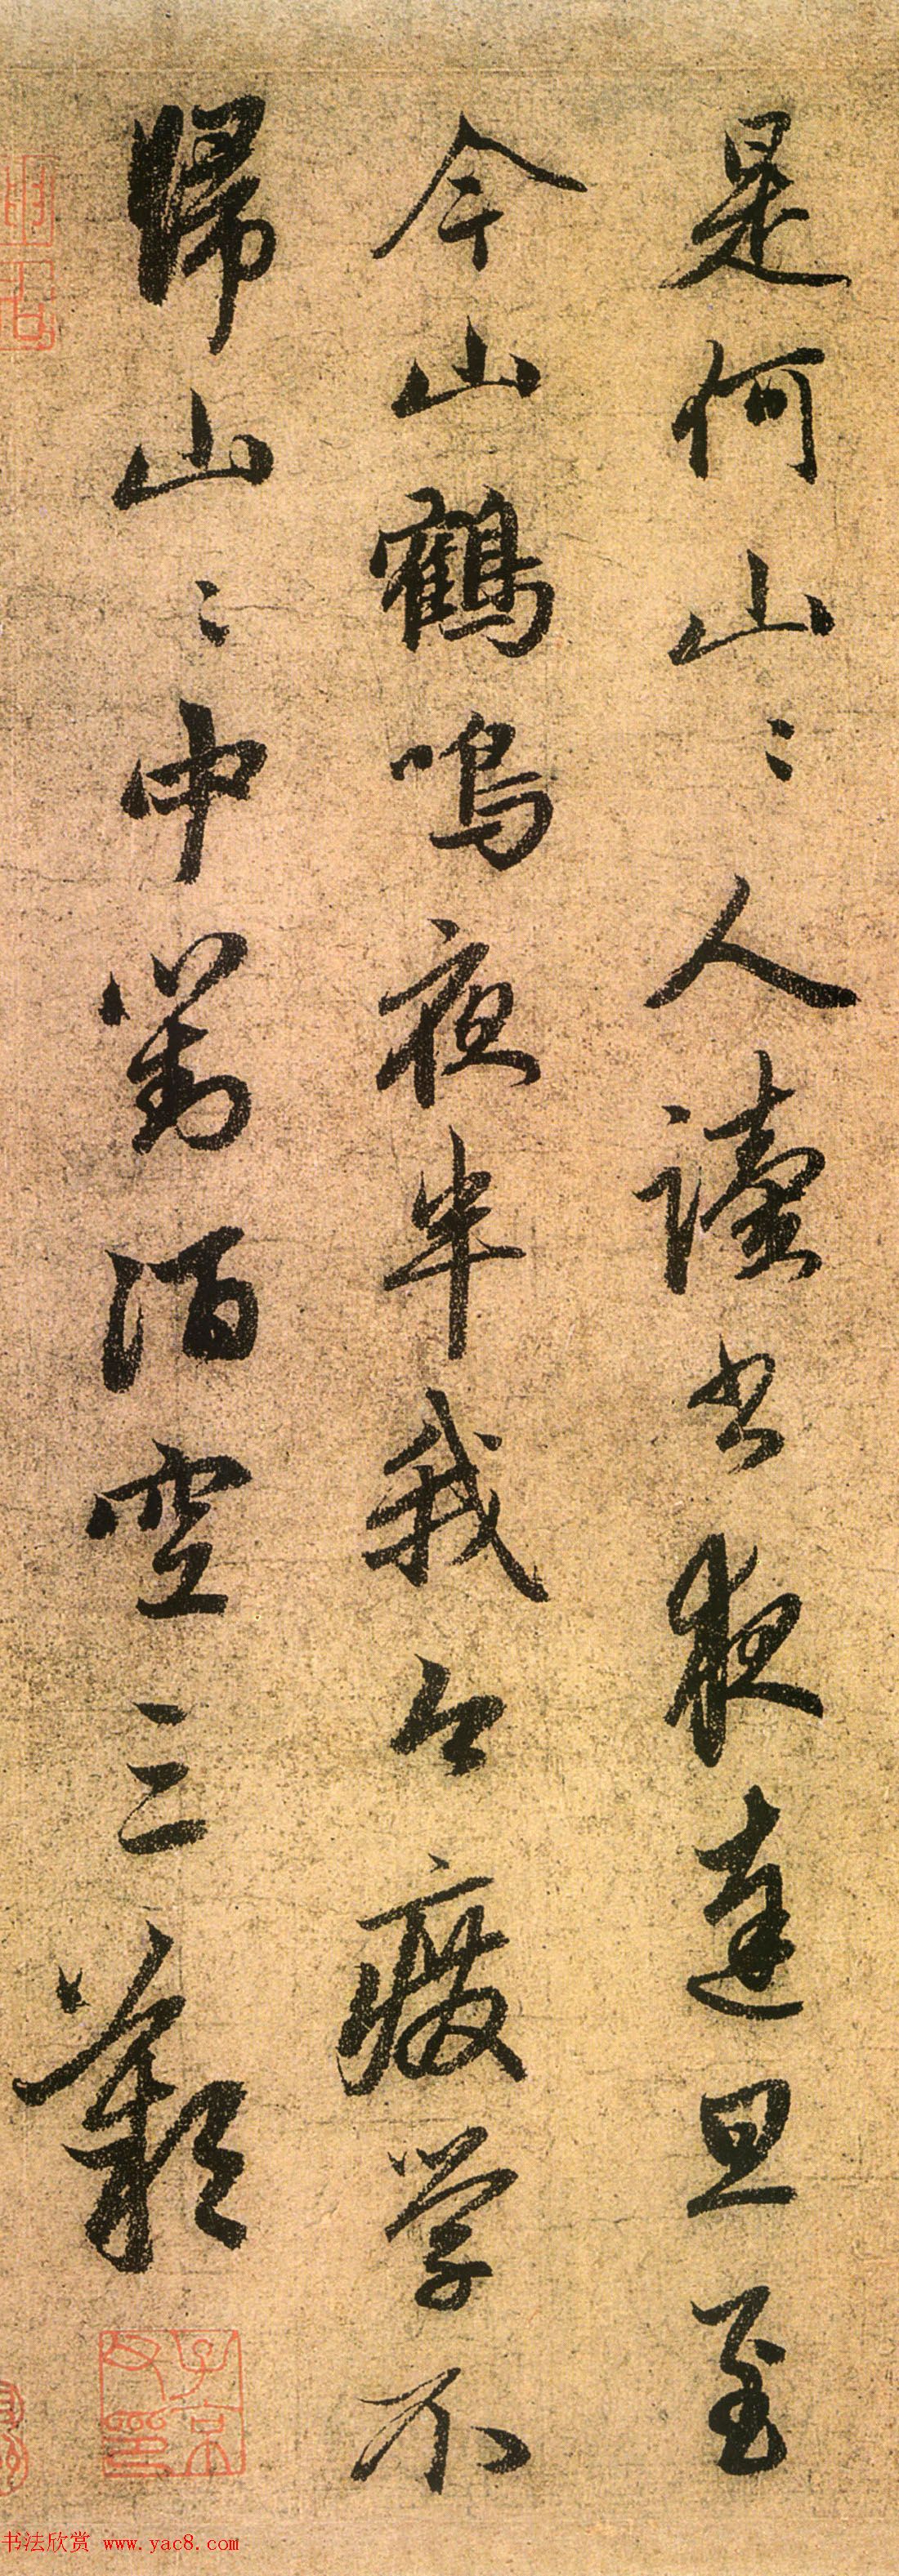 是何山〻人讀書夜達旦至
今山鶴鳴夜半我因廢學不
歸山〻中對酒空三歎
書法欣赏 www.yac8.com